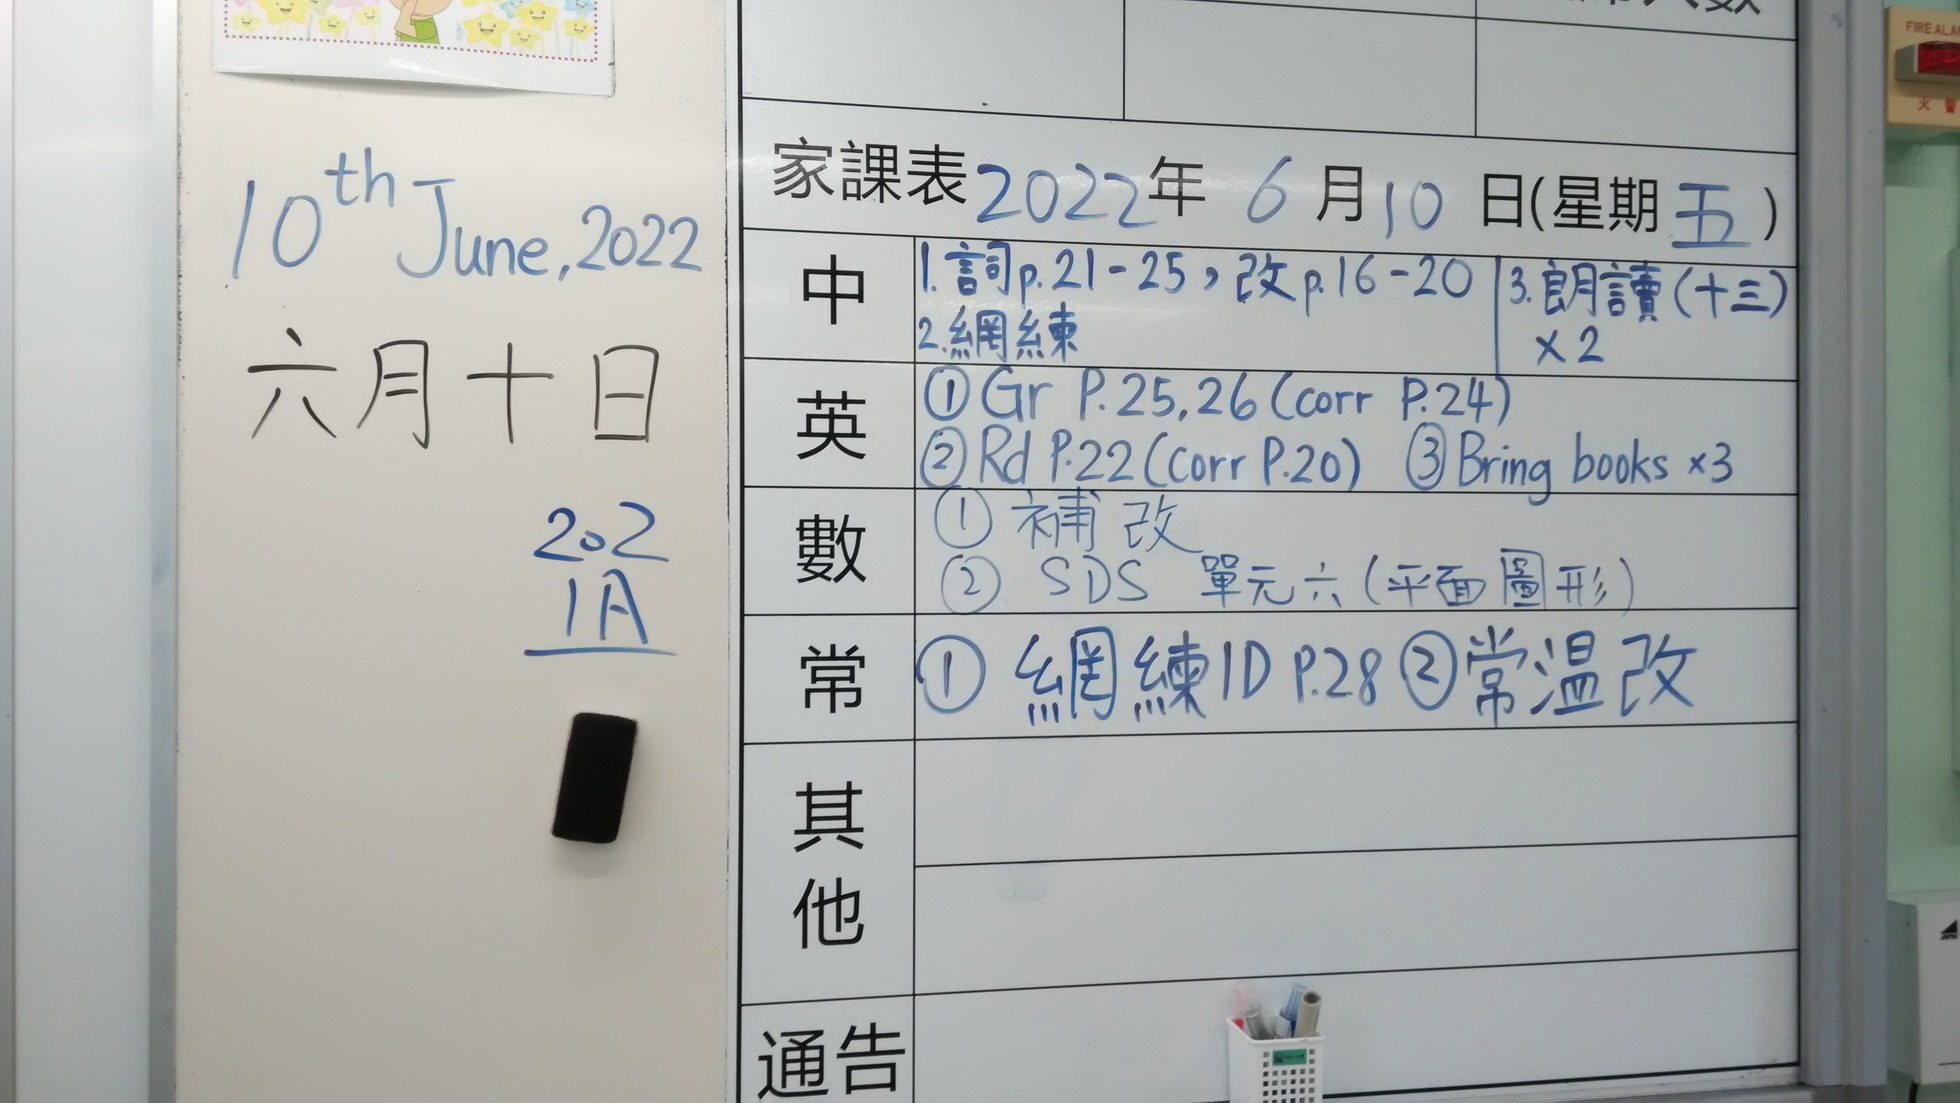 10th June, 2022
六月十日
202
1A
家課表2022年 6月10日(星期五)
中
1.詞p.21-25，改p.16-20
2.網練
3.朗讀(十三)
×2
英
①Gr P.25,26(corr P.24)
②Rd P.22(corr P.20) ③Bring books ×3
數
①補改
② SDS 單元六(平面圖形)
常
① 網練1D P.28②常温改
其他
通告
FIRE ALA
火